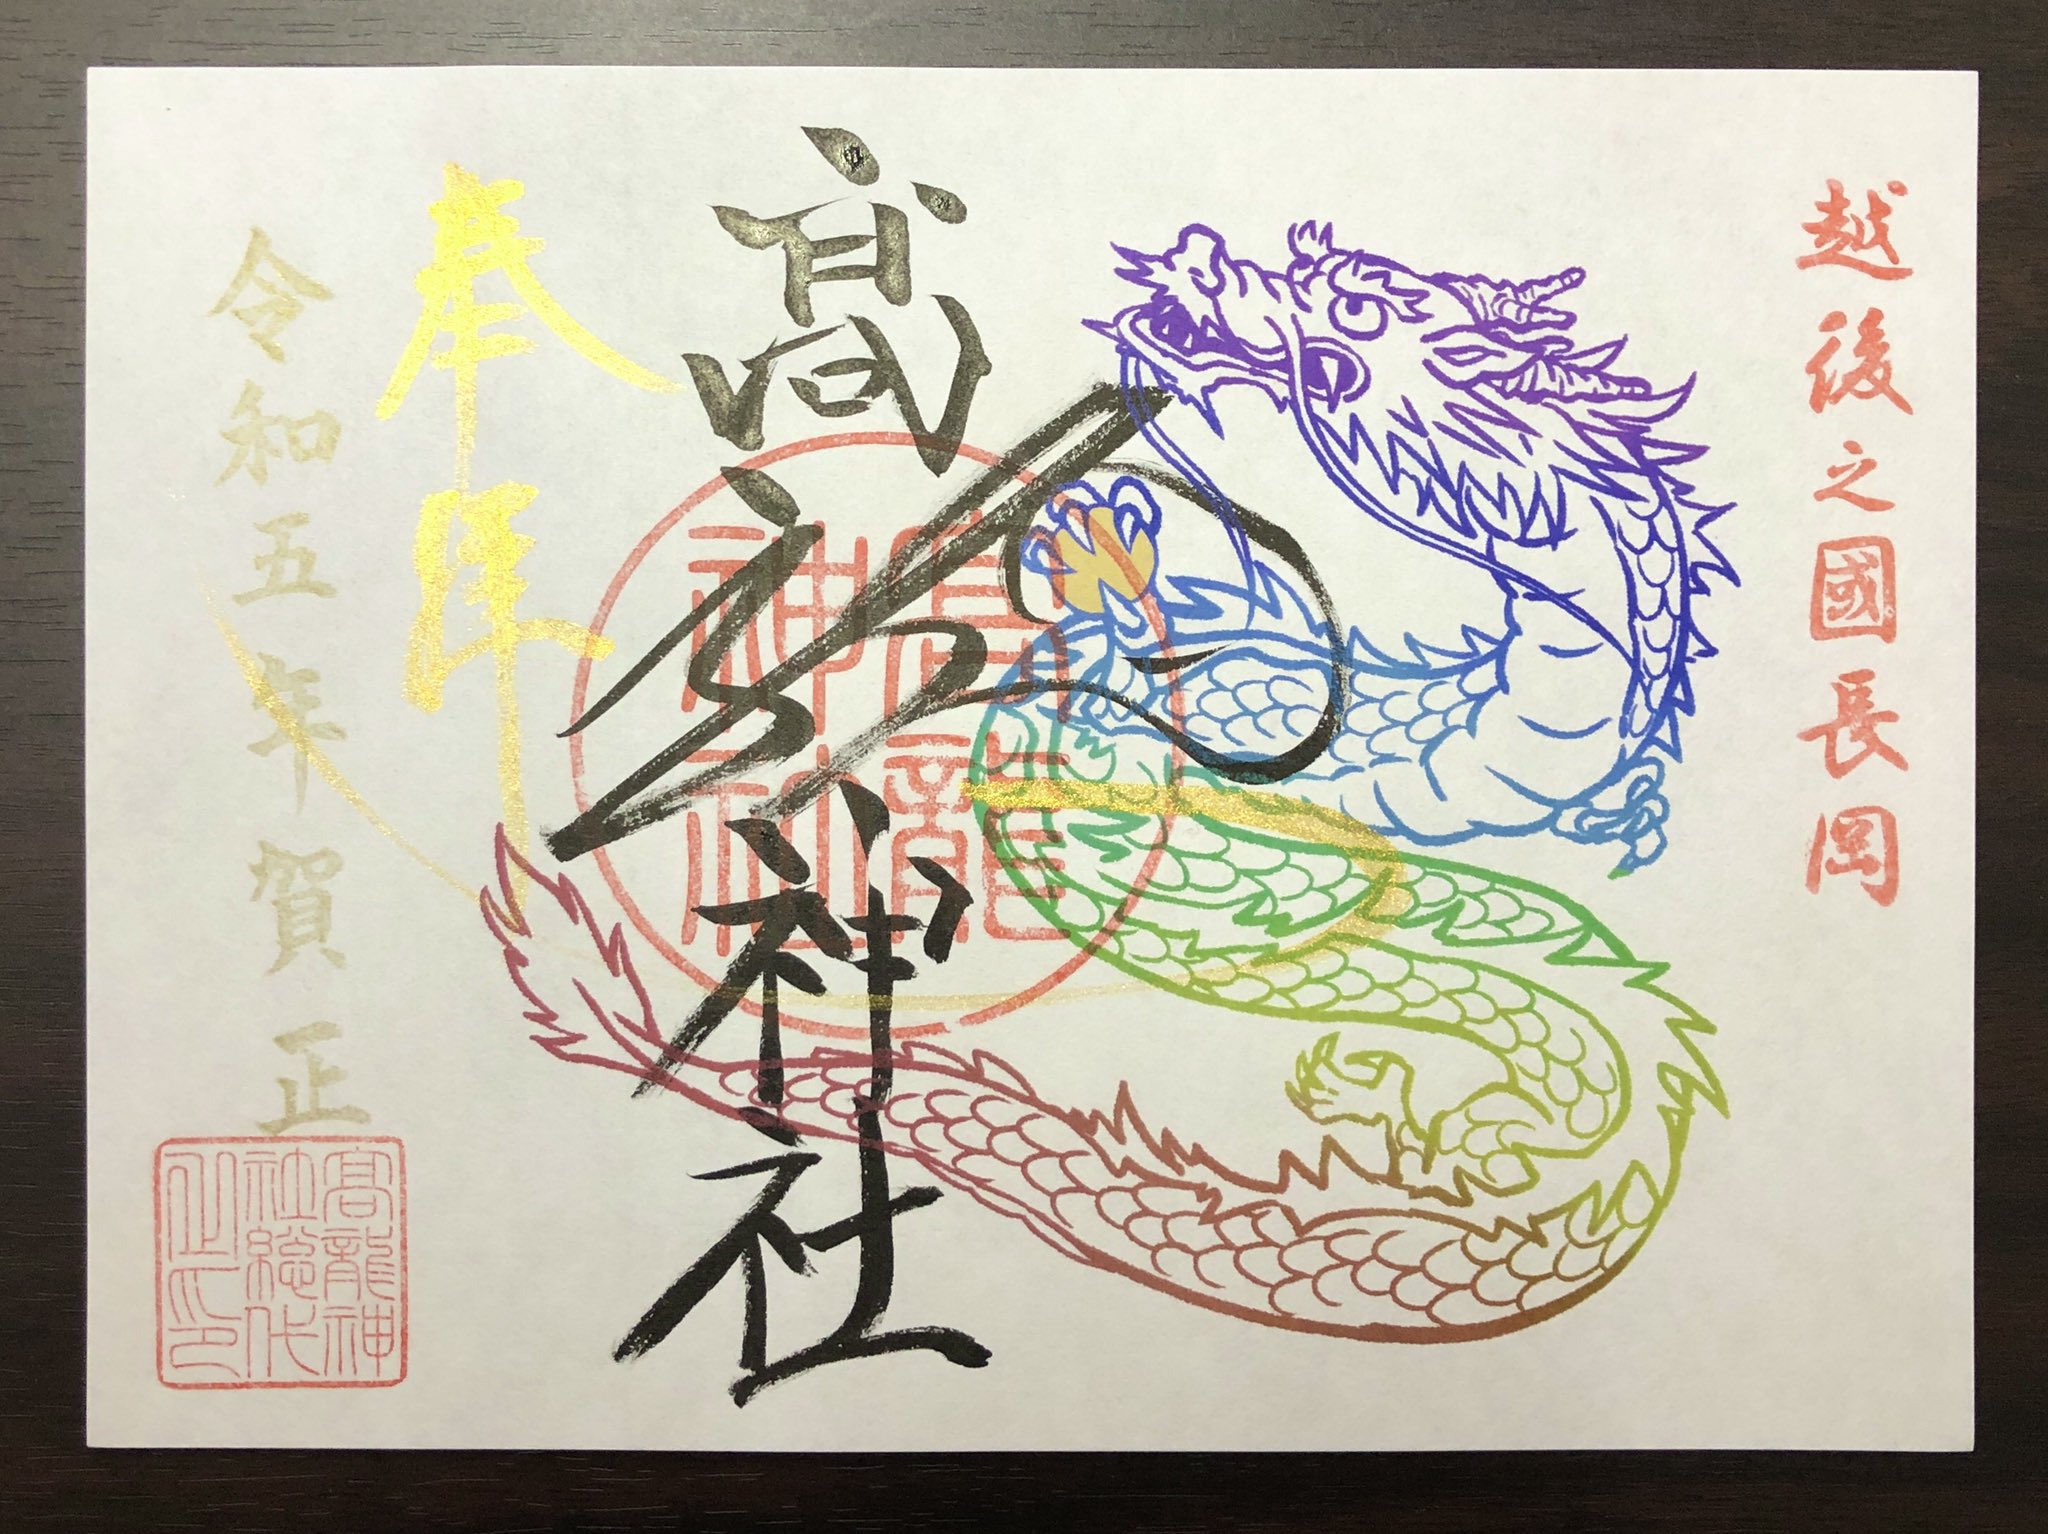 越後之國長岡
髙龍神社
高龍神社
奉拝
令和五年賀正
髙龍神社総代之印